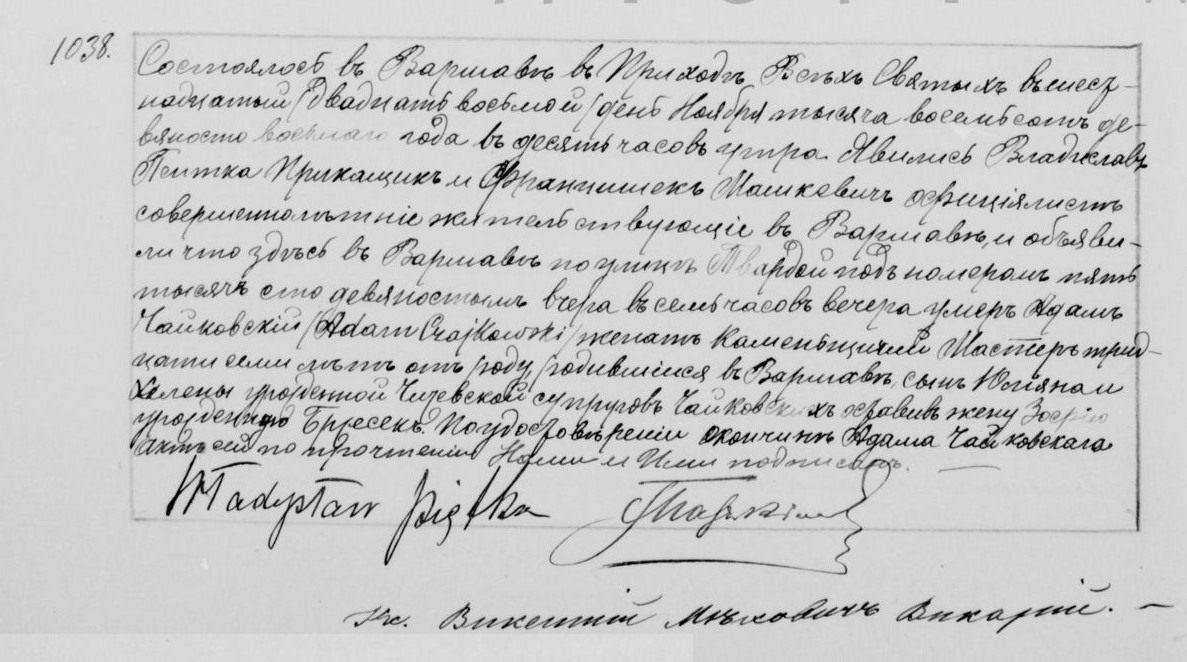 1038.
Состоялось въ Варшавѣ въ Приходѣ Всѣхъ Святыхъ въ шест-
надцатый /двадцать восьмой/ день Ноября тысяча восемьсотъ де-
вяносто восьмаго года въ десять часовъ утра. Явились Владиславъ
Пентка Прикащикъ и Францишекъ Машкевичъ официялистъ
совершеннолѣтніе жительствующіе въ Варшавѣ, и объяви-
ли что здѣсь въ Варшавѣ по улицѣ Твардой подъ номеромъ пять
тысячъ сто девяностымъ вчера въ семь часовъ вечера умеръ Адамъ
Чайковскій /Adam Czajkowski/ женатъ Каменьщичій Мастеръ трид-
цати семи лѣтъ отъ роду, родившійся въ Варшавѣ, сынъ Юліяна и
Хелены урожденной супруговъ Чайковскихъ оставивъ жену Зофію
урожденную Бржесекъ. По удостовѣреніи окончинѣ Адама Чайковскаго
Актъ сей по прочтеніи Нами и Ими подписанъ. —
Władysław Piętka
Кс. Викентій Мѣховичъ Викарій. —